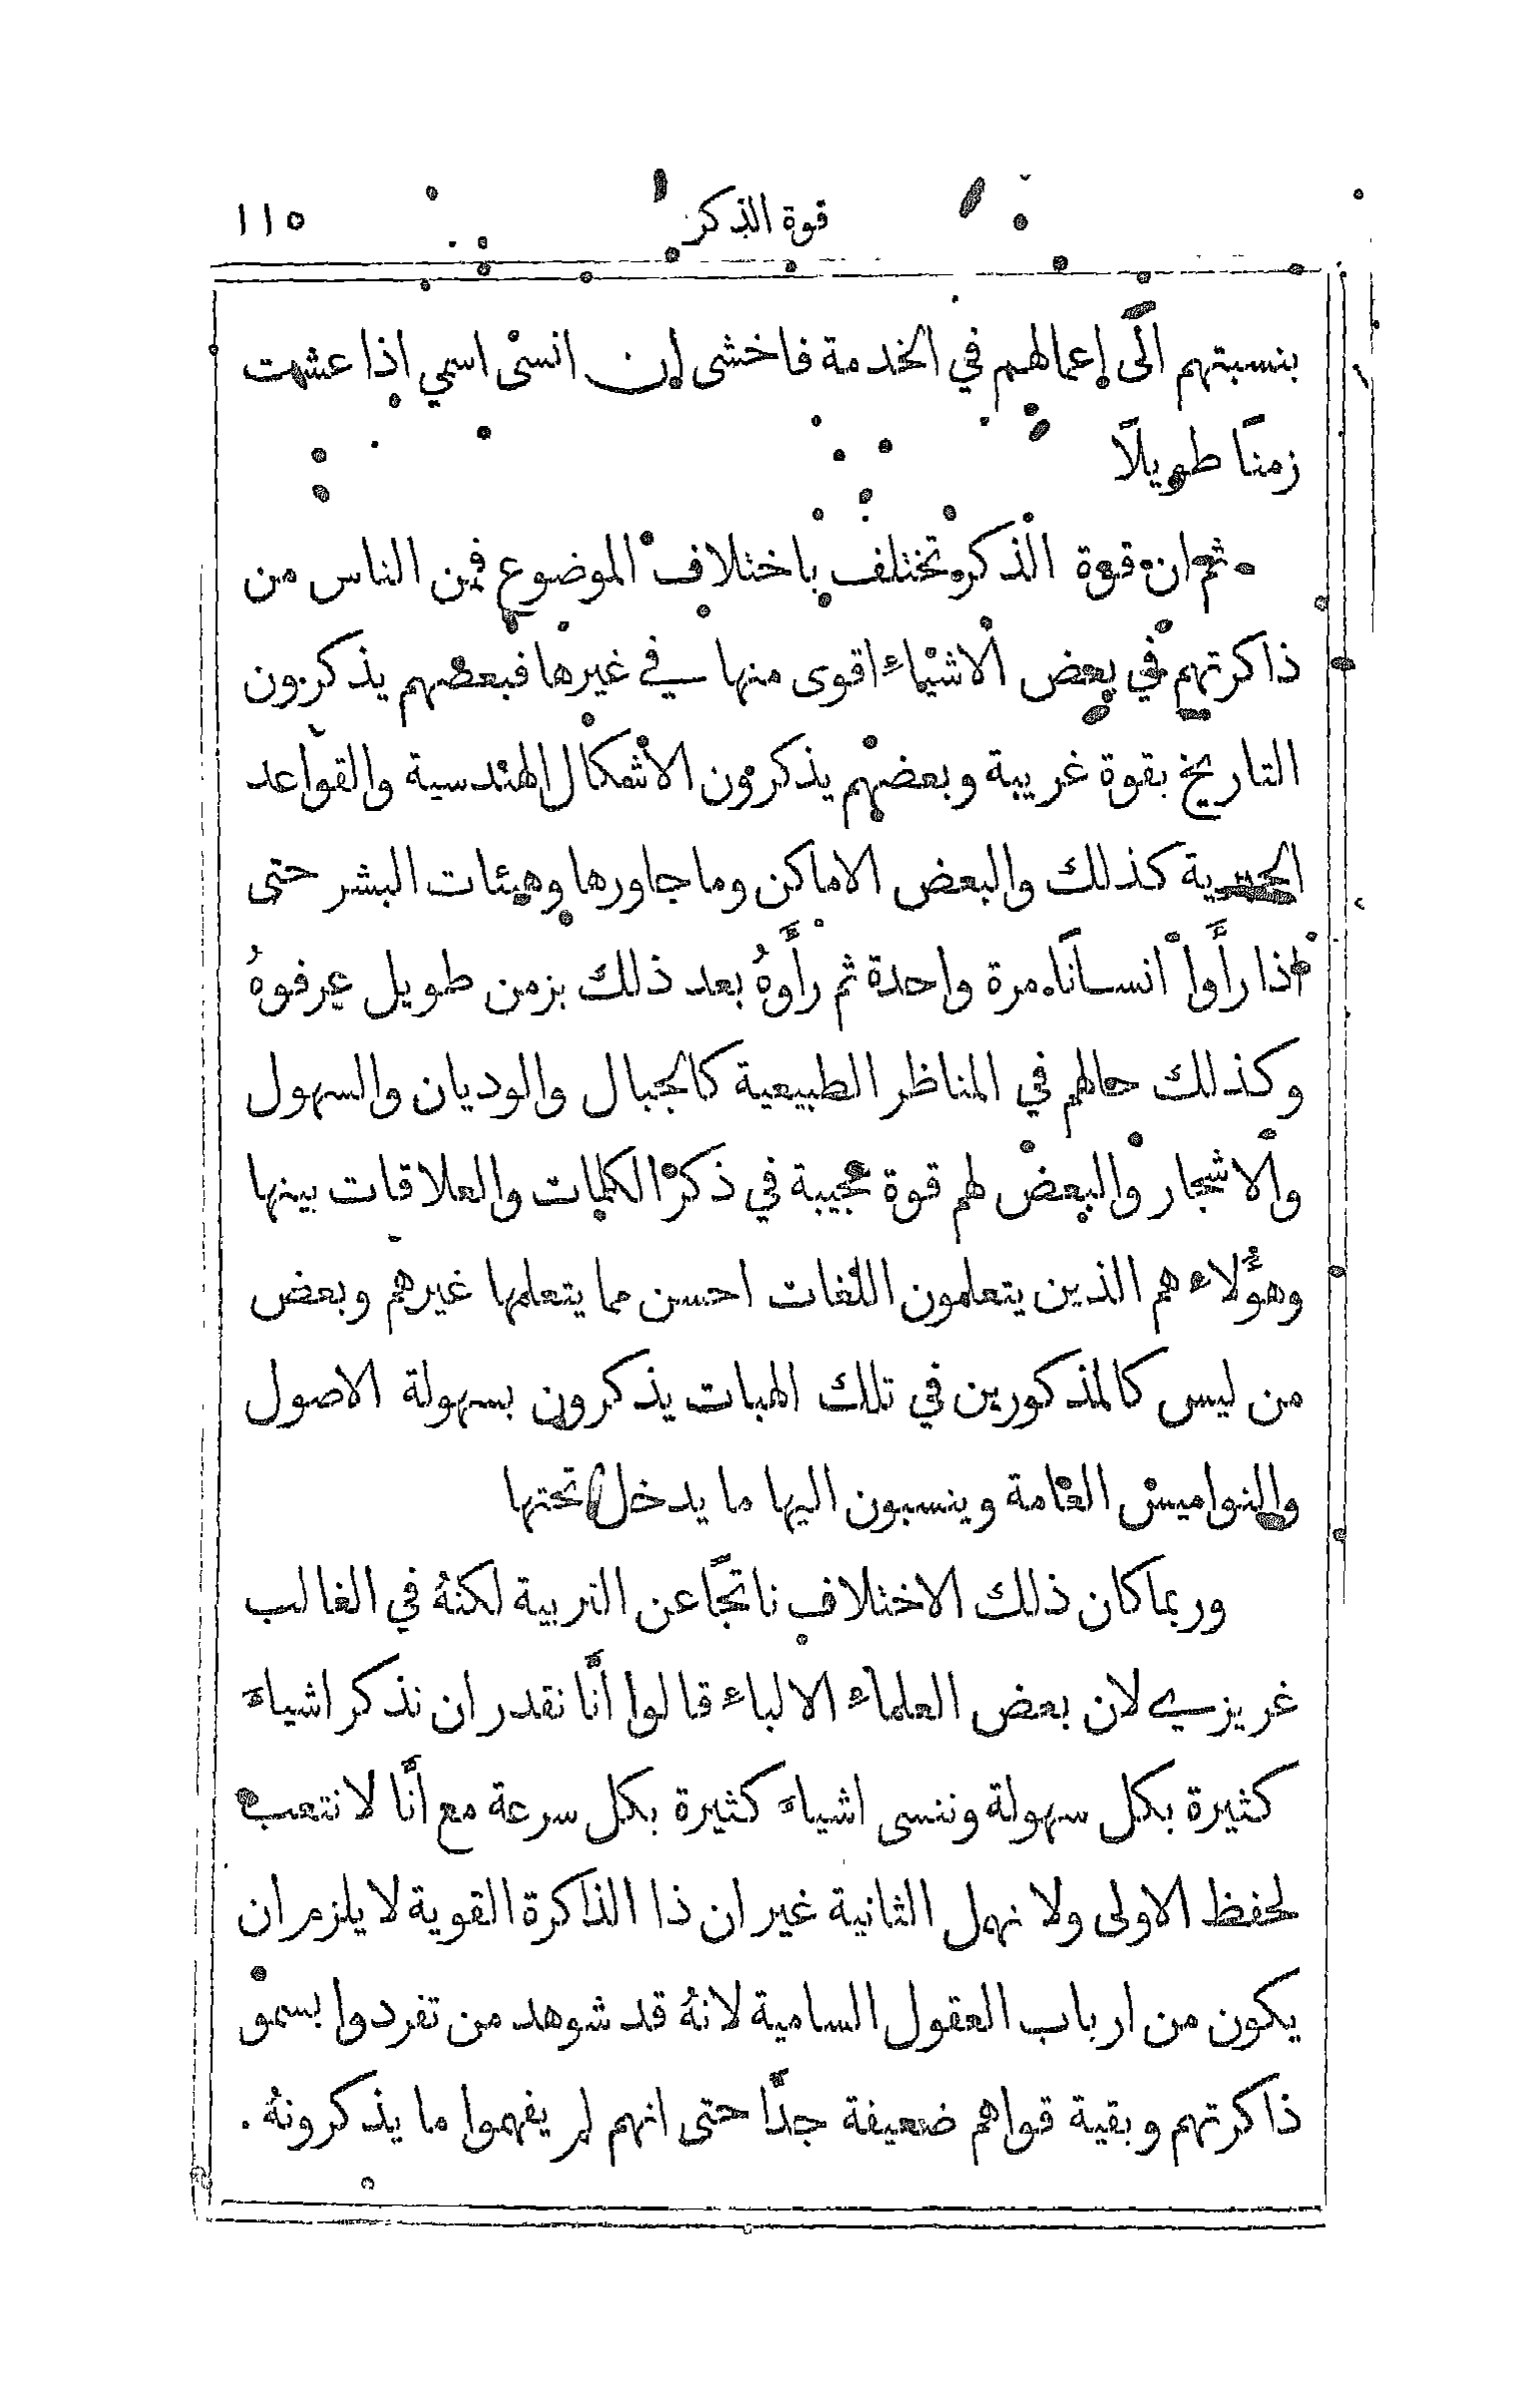 قوة الذكر
١١٥
بنسبتهم الى اعمالهم في الخدمة فاخشى ان انسى اسمي اذا عشت
زمنًا طويلًا
ثم ان قوة الذكر تختلف باختلاف الموضوع فمن الناس من
ذاكرتهم في بعض الاشياء اقوى منها في غيرها فبعضهم يذكرون
التاريخ بقوة غريبة وبعضهم يذكرون الاشكال الهندسية والقواعد
الجبرية كذلك والبعض الاماكن وما جاورها وهيئات البشر حتى
اذا رأَوا انسانًا مرة واحدة ثم رأَوهُ بعد ذلك بزمن طويل عرفوهُ
وكذلك حالهم في المناظر الطبيعية كالجبال والوديان والسهول
والاشجار والبعض لهم قوة عجيبة في ذكر الكلمات والعلاقات بينها
وهؤُلاء هم الذين يتعلمون اللغات احسن مما يتعلمها غيرهم وبعض
من ليس كالمذكورين في تلك الهبات يذكرون بسهولة الاصول
والنواميس العامة وينسبون اليها ما يدخل تحتها
وربما كان ذلك الاختلاف ناتجًا عن التربية لكنهُ في الغالب
غريزي لان بعض العلماء الالباء قالوا أنَّا نقدر ان نذكر اشياءَ
كثيرة بكل سهولة وننسى اشياءَ كثيرة بكل سرعة مع أنَّا لا نتعب
لحفظ الاولى ولا نهمل الثانية غير ان ذا الذاكرة القوية لا يلزم ان
يكون من ارباب العقول السامية لانهُ قد شوهد من تفردوا بسمو
ذاكرتهم وبقية قواهم ضعيفة جدًّا حتى انهم لم يفهموا ما يذكرونهُ .